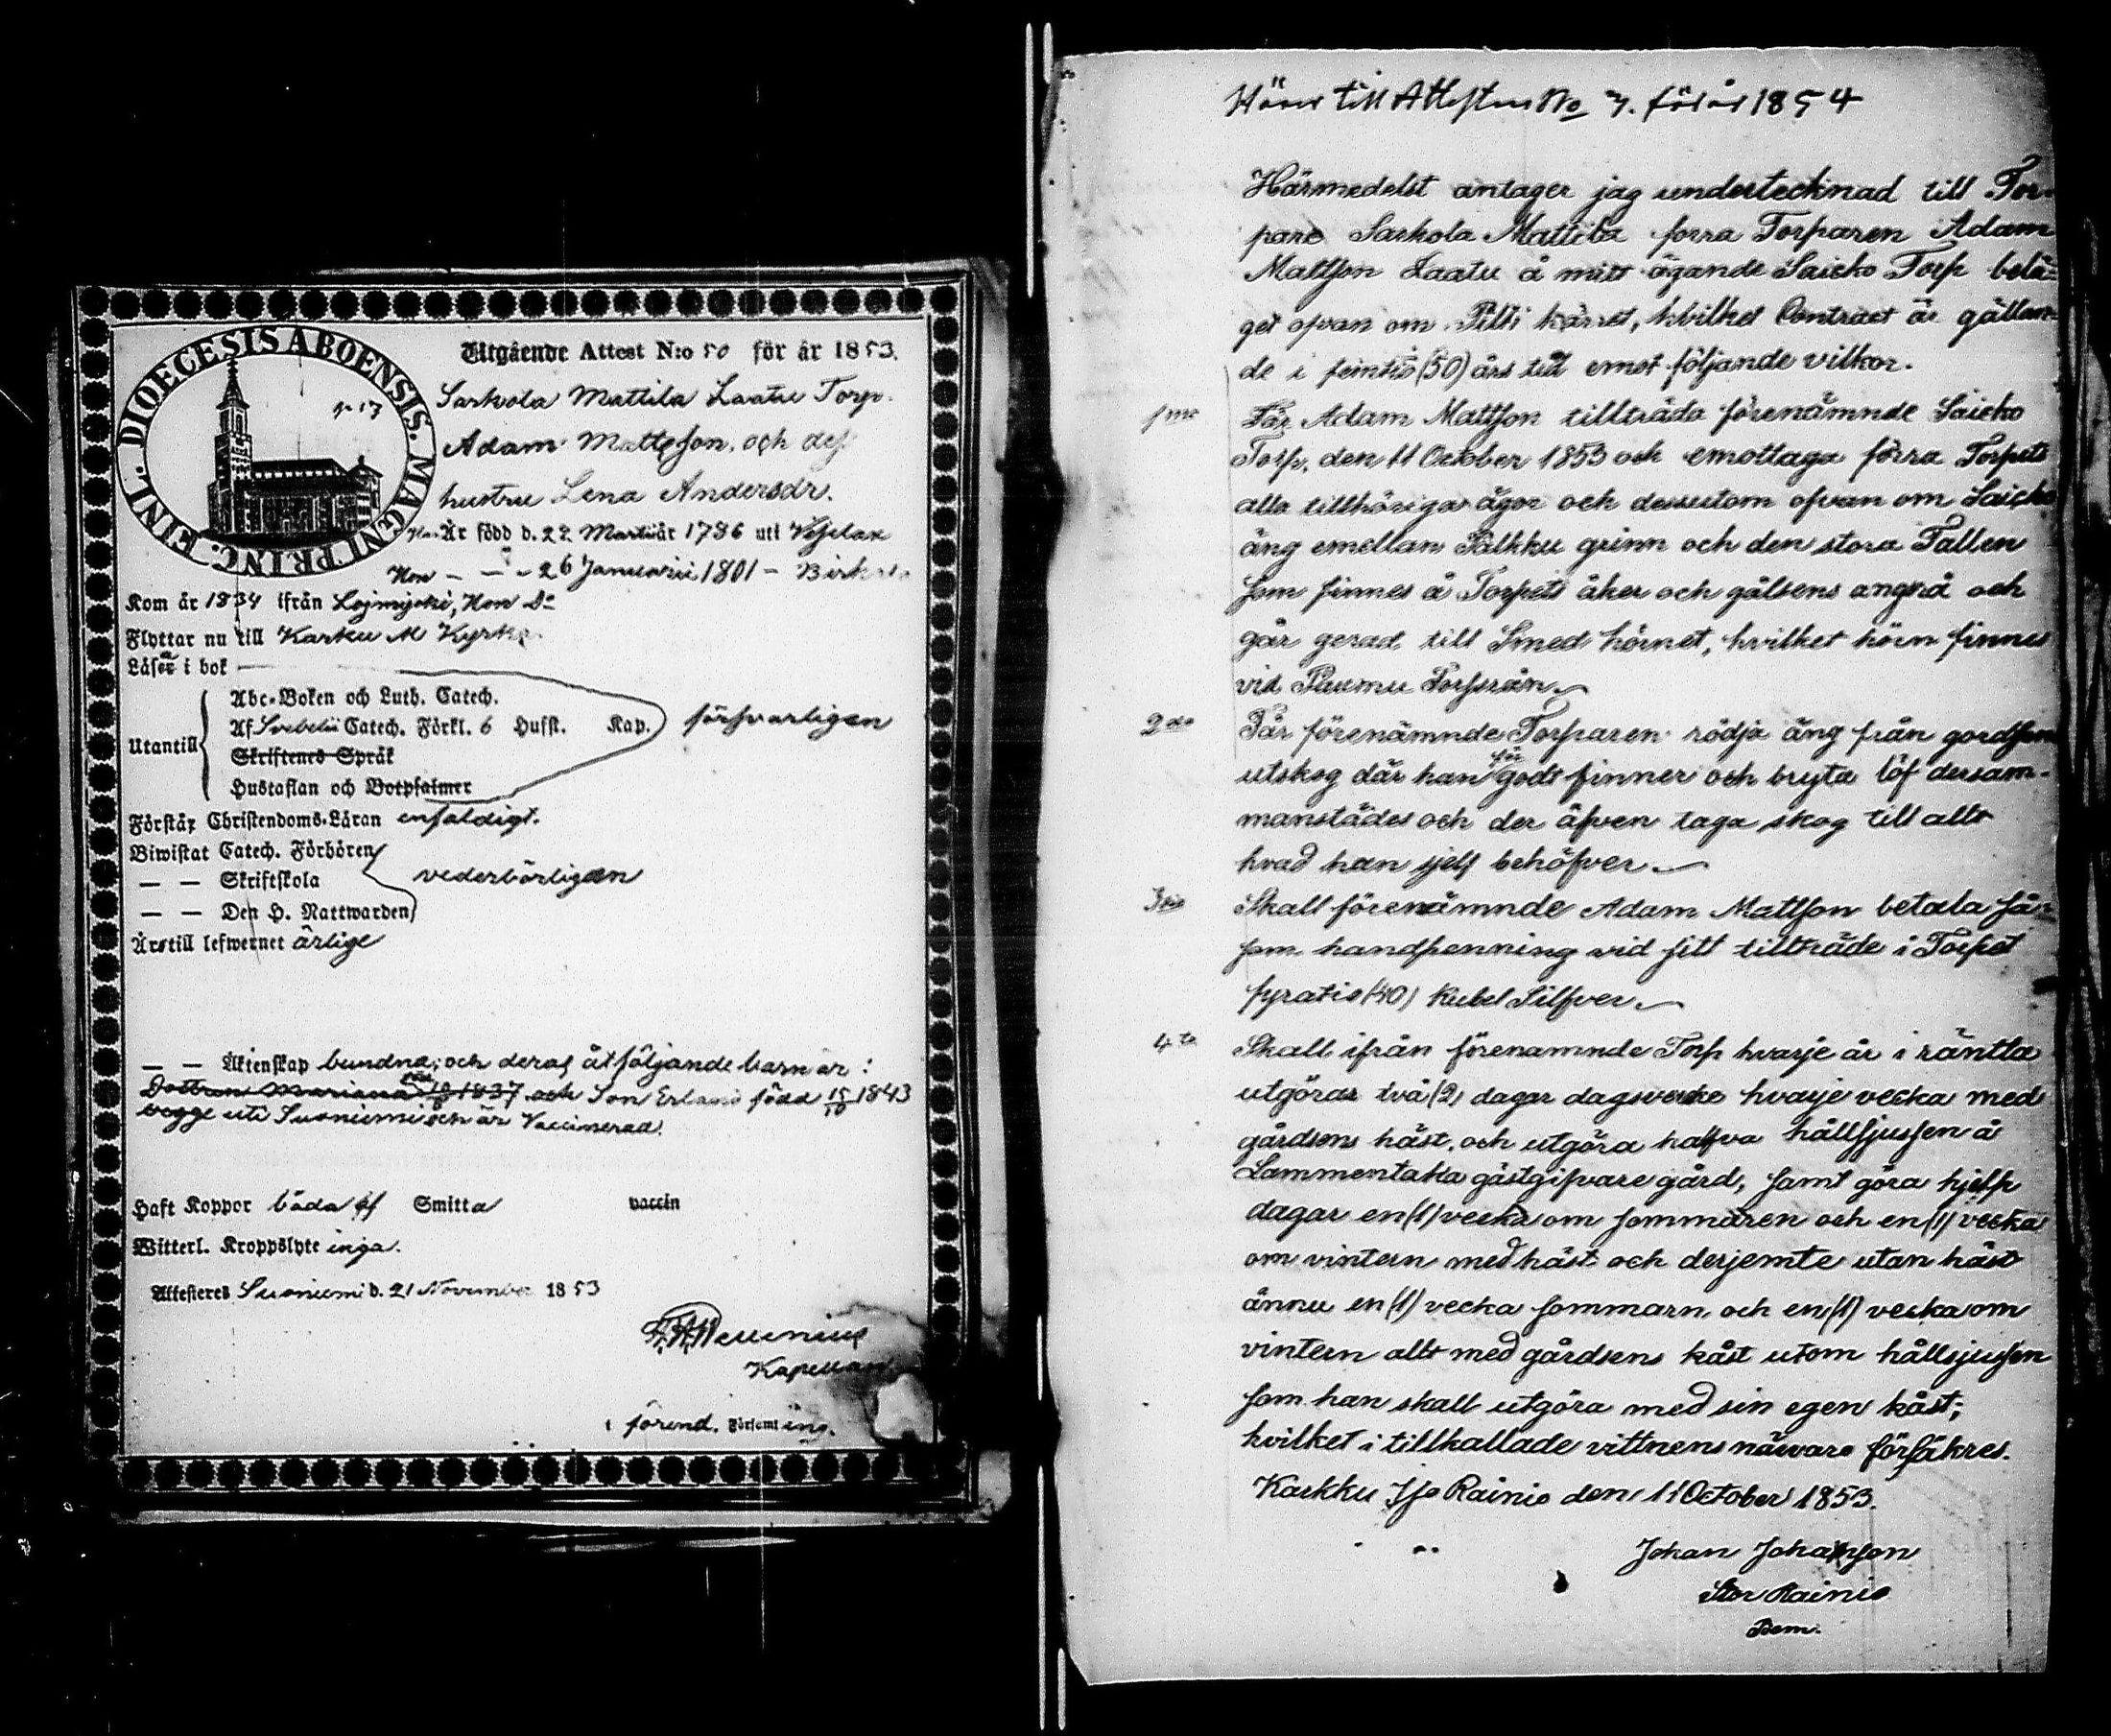 DIOECESIS ABOENSIS. MAGNI PRINC. FINL.
Utgående Attest N:o 50 för år 1853.
p. 17
Sarkola Mattila Laatu Torp.
Adam Mattsson, och dess
hustru Lena Andersdr.
Han Är född d. 22 Martii år 1786 uti Vesilax
Hon — — - 26 Januarii 1801 - Birkala
Kom år 1834 ifrån Lojmijoki, Hon Do
Flyttar nu till Karku M Kyrka
Läser i bok —
Utantill
Abc-Boken och Luth. Catech.
Af Svebelii Catech. Förkl. 6 Hufst. Kap. försvarligen
Skriftenes Språk
Hustaflan och Botpsalmer
Förstår Christendoms-Läran enfaldigt.
Biwistat Catech. Förhören
— — Skriftskola vederbörligen
— — Den H. Nattwarden
Är till lefwernet ärlige
— — Äktenskap bundna; och deras åtföljande barn är:
Dottren Mariana född 1837 och Son Erland född 15/10 1843
begge uti Suoniemi och är Vaccinerad.
Haft Koppor båda af Smitta vaccin
Witterl. Kroppslyte inga.
Attesteras Suoniemi d. 21 November 1853
Kapellan
i förend. Församling.
Hörer till Attesten No 7. för år 1854
Härmedelst antager jag undertecknad till Tor-
pare Sarkola Mattila forra Torparen Adam
Mattson Laatu å mitt ägande Saicko Torp belä-
get ofvan om Pilli kärret, hvilket Contract är gällan-
de i femtio (50) års tid emot följande vilkor.
1mo Får Adam Mattson tillträda förenämnde Saicko
Torp, den 11 October 1853 och emottaga förra Torpets
alla tillhöriga ägor och dessutom ofvan om Saicko
äng emellan Pälkku grinn och den stora Tallen
som finnes å Torpets åker och gälsens angrå och
går gerad till Smed hörnet, hvilket hörn finnes
vid Paumu Torpsrån.
2do Får förenämnde Torparen rödja äng från gordsens
utskog där han för godt finner och bryta löf dersam-
manstädes och der äfven taga skog till allt
hvad han sjelf behöfver.
3tio Skall förenämnde Adam Mattson betala så-
som handpenning vid sitt tillträde i Torpet
fyratio (40) Rubel Silfver.
4to Skall ifrån förenamnde Torp hvarje år i räntla
utgöras två (2) dagar dagsverke hvarje vecka med
gårdsens häst, och utgöra halfva hållsjussen å
Lammentaka gästgifvare gård, samt göra hjelp
dagar en (1) vecka om sommaren och en (1) vecka
om vintern med häst och derjemte utan häst
ännu en (1) vecka sommarn, och en (1) vecka om
vintern allt med gårdsens kåst utom hållsjussen
som han skall utgöra med sin egen kåst;
hvilket i tillkallade vittnens närvaro försäkres.
Karkku Iso Rainio den 11 October 1853.
Johan Johansson
Stor Rainio
Bom.